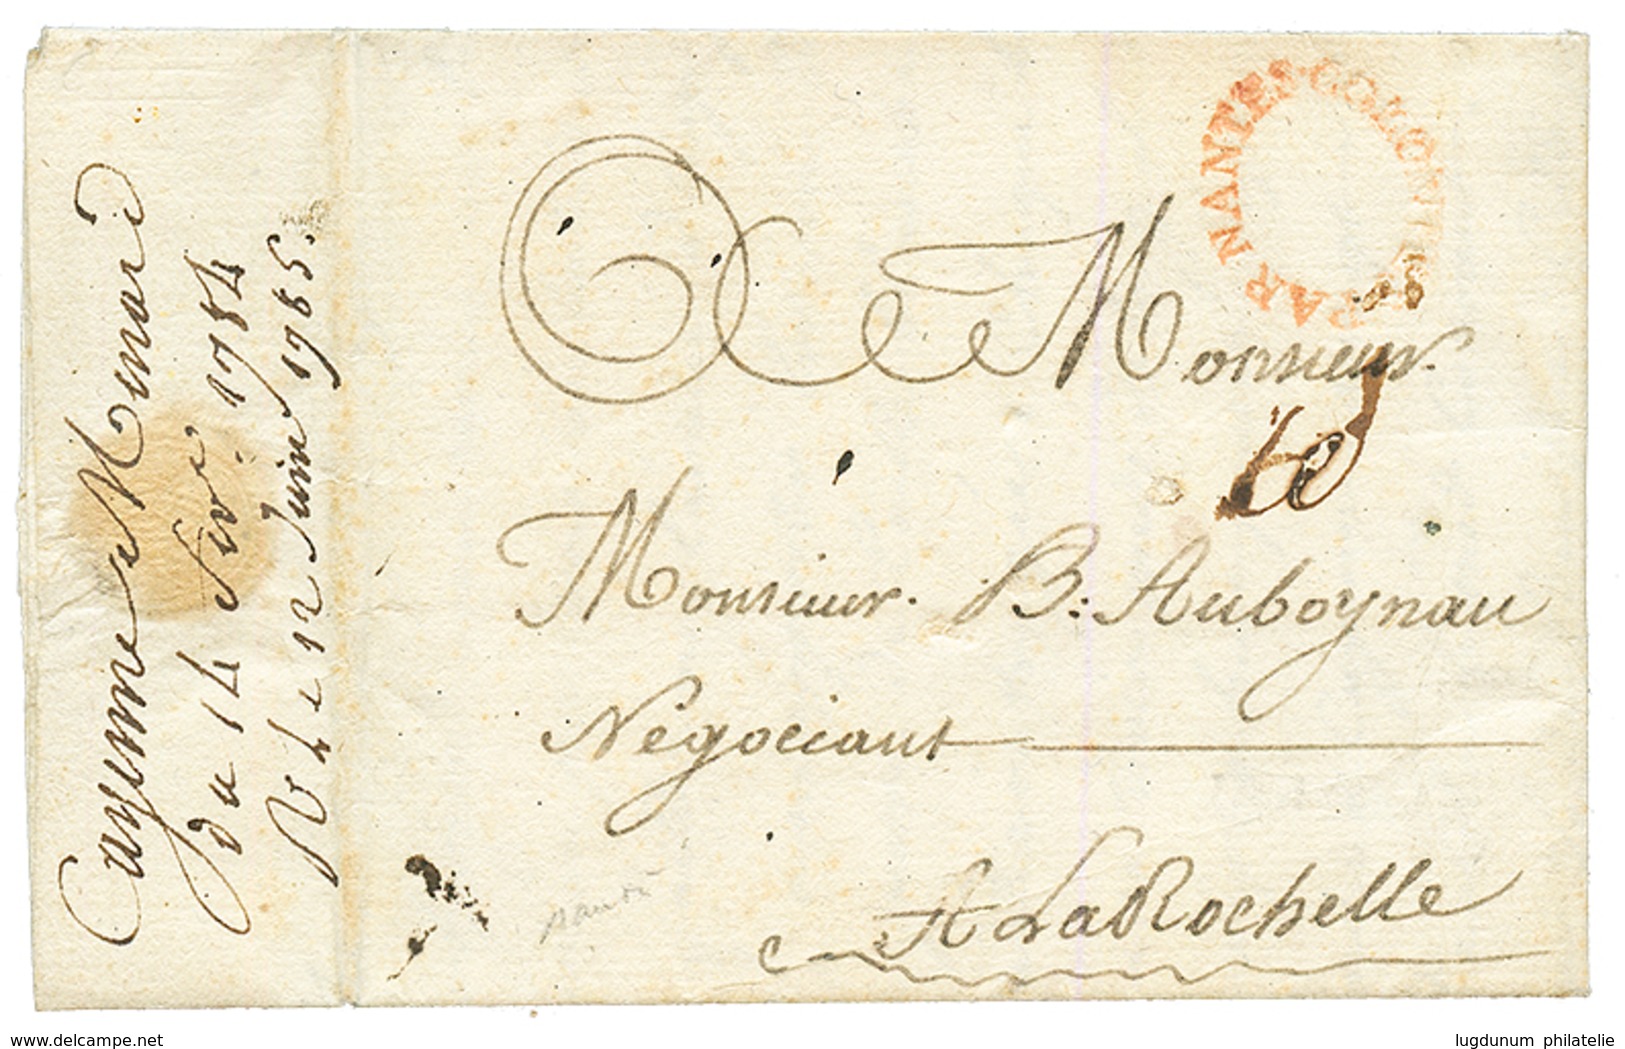 Cayenne Menard
du 14 nov.re 1784
R le 12 Juin 1785.
COLONIES PAR NANTES
Monsieur
Monsieur B: Auboynau
Négociant
A LaRochelle
www.delcampe.net
lugdunum philatelie